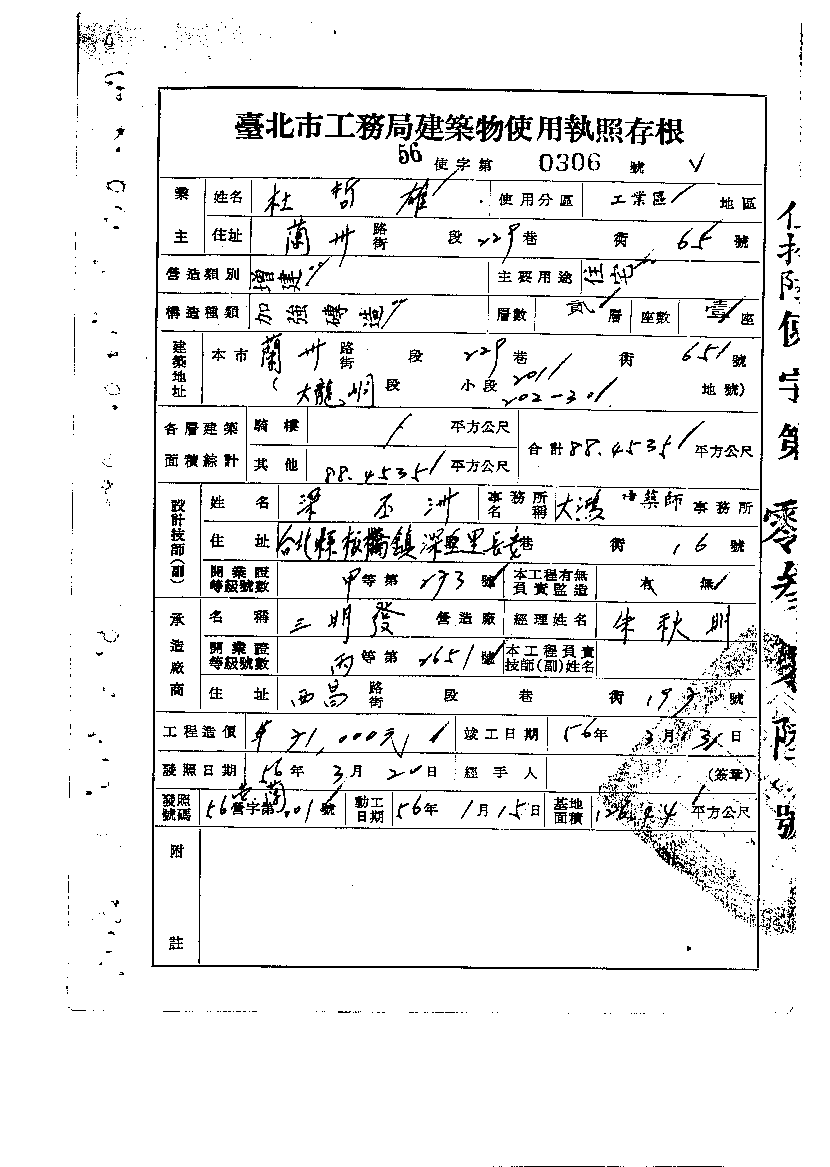 臺北市工務局建築物使用執照存根
56 使字第 0306 號
業主 姓名 杜哲雄 使用分區 工業區 地區
住址 蘭州 路街 段 229 巷 衖 65 號
營造類別 增建 主要用途 住宅
構造種類 加強磚造 層數 貳 層 座數 壹 座
建築地址 本市 蘭州 路街 段 229 巷 衖 65 號
( 大龍峒 段 小段 201 202-30 地號)
各層建築面積綜計 騎樓 / 平方公尺 合計 88.4535 平方公尺
其他 88.4535 平方公尺
設計技師(副) 姓名 梁丕洲 事務所名稱 大鴻 建築師 事務所
住址 台北縣板橋鎮深丘里長安 巷 衖 16 號
開業證等級號數 甲 等第 273 號 本工程有無負責監造 有 無
承造廠商 名稱 三明發 營造廠 經理姓名 朱秋
開業證等級號數 丙 等第 2651 號 本工程負責技師(副)姓名
住址 西昌 路街 段 巷 衖 號
工程造價 71,000元 竣工日期 56年 3月 日
發照日期 56年 3月 20日 經手人 (簽章)
發照號碼 56 營字第 號 動工日期 56年 1月 15日 基地面積 126.44 平方公尺
附註
伍拾陸使字第零參零陸號